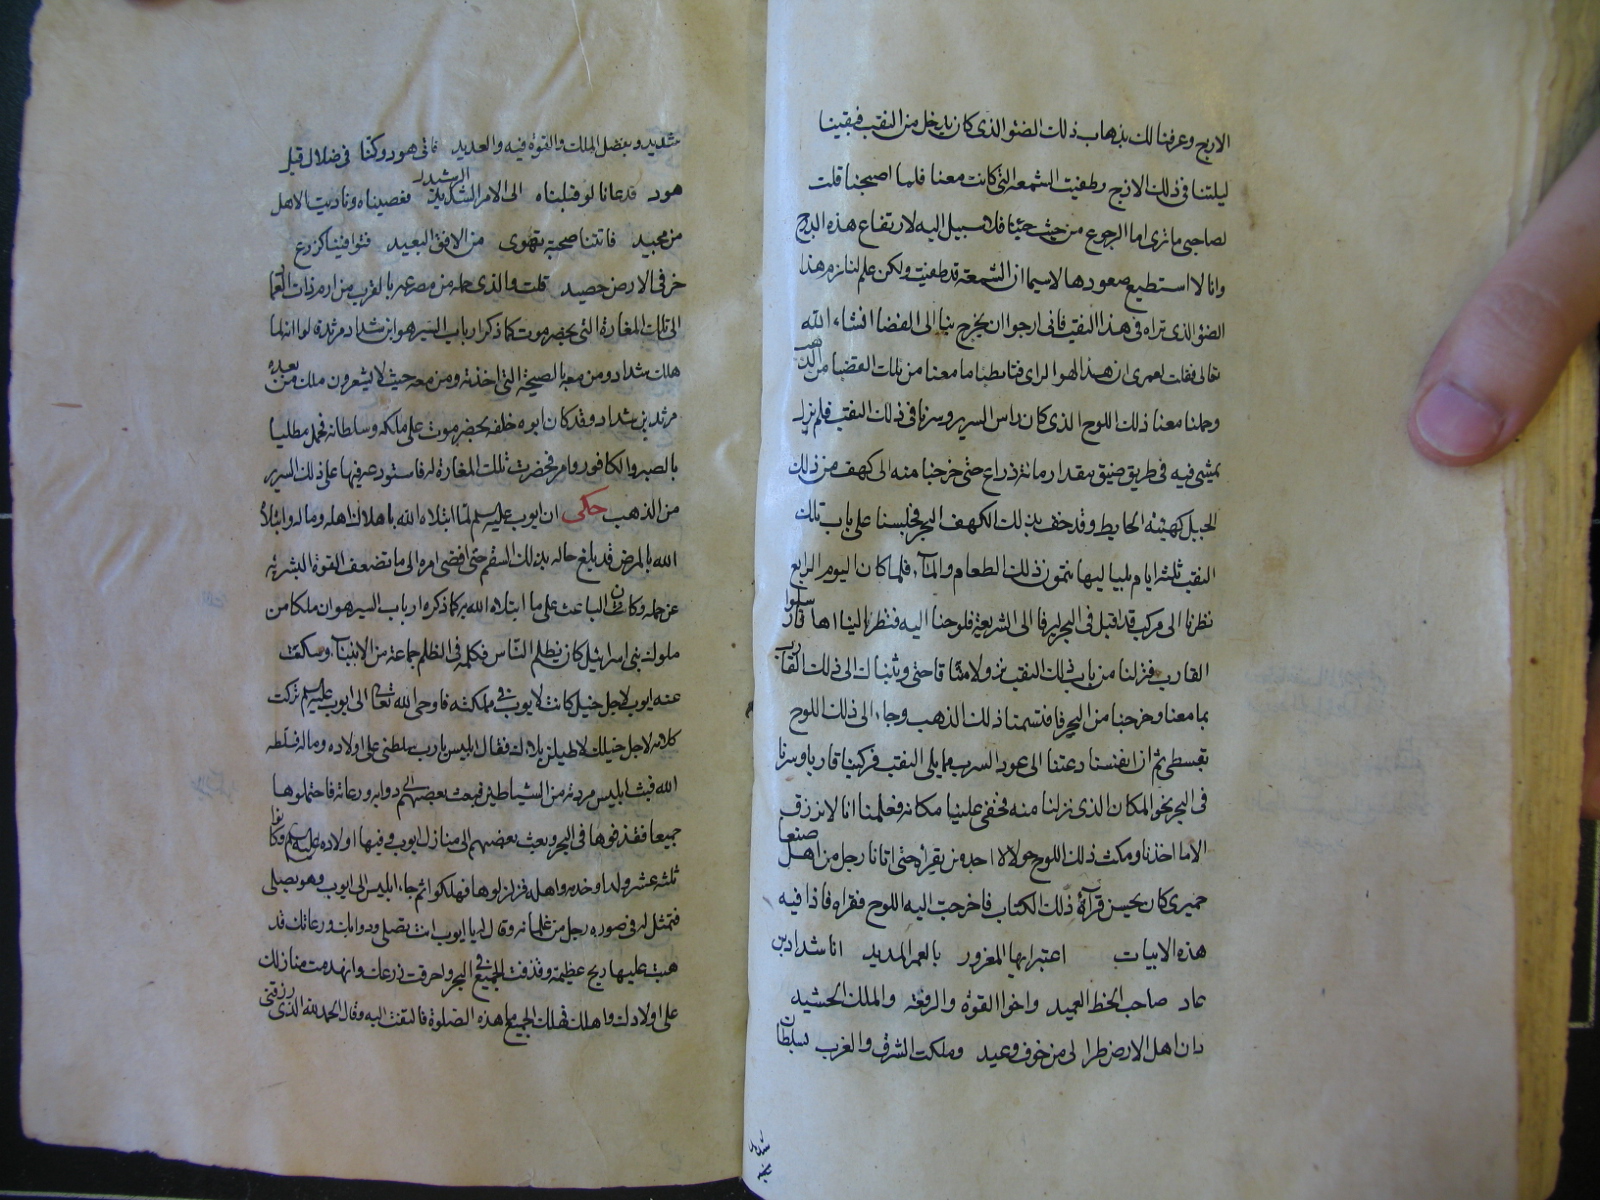 الازج وعرفنا لك بذهاب ذلك الضوء الذى كان يدخل من النقب فبقينا
ليلتنا فى ذلك الازج وطفيت الشمعه التى كانت معنا فلما اصبحنا قلت
لصاحبى ما ترى اما الرجوع من حيث جئنا فلا سبيل اليه لارتفاع هذه الدرج
وانا لا استطيع صعودها لاسيما ان الشمعة قد طفيت ولكن علم لنا نزم هذا
الضوء الذى تراه فى هذا النقب فانى ارجوا ان يخرج بنا الى الفضا انشاء الله
تعالى فقلت لعمرى ان هذا لهو الراى فتابطنا ما معنا من تلك القضبا من الذهب
وحملنا معنا ذلك اللوح الذى كان براس السرير وسرنا فى ذلك النقب فلم نزل
نمشى فيه فى طريق ضيق مقدار مائة ذراع حتى خرجنا منه الى كهف من ذلك
الجبل كهيئة الحايط وقد حف بذلك الكهف البحر فجلسنا على باب تلك
النقب ثلثه ايام بلياليها نتمون ذلك الطعام والمآء فلما كان اليوم الرابع
نظرنا الى مركب قد اقبل فى البحر فلوحنا اليه فنظر الينا اهله فارسلوا
القارب فنزلنا من باب ذلك النقب نزولا مشاقا حتى وثبنا الى ذلك القارب
بما معنا وخرجنا من البحر فاقتسمنا ذلك الذهب وجاء الى ذلك اللوح
بقسطى ثم ان انفسنا دعتنا الى عود السرب مما يلى النقب فركبنا قاربا وسرنا
فى البحر نحو المكان الذى نزلنا منه فخفى علينا مكانه فعلمنا انا لا نرزق
الا ما اخذنا ومكث ذلك اللوح حولا لا احد من يقراه حتى اتانا رجل من اهل صنعا
حميرى كان يحسن قرآءة ذلك الكتاب فاخرجت اليه اللوح فقراه فاذا فيه
هذه الابيات اعتبر ايها المغرور بالعمر المديد انا شداد بن
عاد صاحب الحظ العميد واخوا القوة والرفعة والملك الحشيد
دان اهل الارض طرا لى من خوف وعيد وملكت الشرق والغرب بسلطان
شديد
شديد وبفضل الملك والقوة فيه والعديد فاتى هود وكنا فى ضلال قبل
هود فدعانا لو قبلناه الى الامر الرشيد فعصيناه وناديت الا هل
من محيد فاتتنا صيحة تهوى من الافق البعيد فتوافينا كزرع
خر فى الارض حصيد قلت والذى حمله من مصرعه بالقرب من ارم ذات العماد
الى تلك المغارة التى بحضرموت كما ذكر ارباب السير هو ابن شداد مرثد لوا انه لما
هلك شداد ومن معه بالصيحة التى اخذته ومن معه حيث لا يشعرون ملك من بعده
مرثد بن شداد وقد كان ابوه خلفه بحضرموت على ملكه وسلطانه فحمل مطليا
بالصبر والكافور وامر فحضرت تلك المغارة له فاستودعه فيها على ذلك السرير
من الذهب حكى ان ايوب عليه السلم لما ابتلاه الله باهلاك اهله وماله وابتلاه
الله بالمرض قد بلغ حاله بذلك السقم حتى افضى امره الى ما تضعف القوة البشريه
عن حمله وكان الباعث على ما ابتلاه الله به كما ذكره ارباب السير هو ان ملكا من
ملوك بنى اسرائيل كان يظلم الناس فكلمه فى الظلم جماعة من الانبياء وسكت
عنه ايوب لاجل خيل كانت لايوب فى مملكته فاوحى الله تعالى الى ايوب عليه السلم تركت
كلامه لاجل خيلك لاطيلن بلاءك فقال ابليس يا رب سلطنى على اولاده وماله فسلطه
الله فبث ابليس مردته من الشياطين فبعث بعضهم الى دوابه ورعاته فاحتملوها
جميعا فقذفوها فى البحر وبعث بعضهم الى منازل ايوب وفيها اولاده عليه السلم وكانوا
ثلثه عشر ولدا وخدمه واهله فزلزلوها فهلكوا ثم جاء ابليس الى ايوب وهو يصلى
فتمثل له فى صورة رجل من غلمانه وقال له يا ايوب انت تصلى ودوابك ورعاتك قد
هبت عليها ريح عظيمة وقذفت الجميع فى البحر واحرقت زرعك وانهدمت منازلك
على اولادك واهلك فهلك الجميع ما هذه الصلوة فالتفت اليه وقال الحمد لله الذى رزقنى